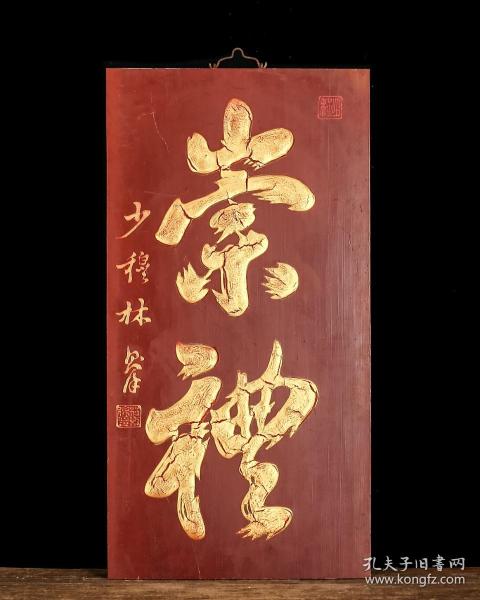 崇禮
少穆林則徐
孔夫子旧书网
www.kongfz.com